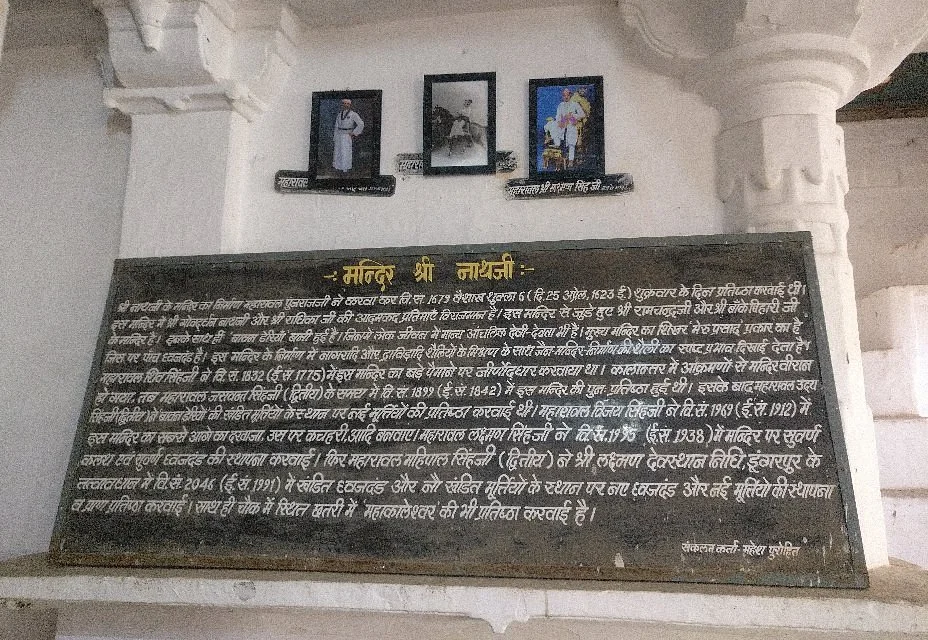 महारावल
महारावल श्री लक्ष्मण सिंह जी
-: मन्दिर श्री नाथजी :-
श्री नाथजी के मन्दिर का निर्माण महारावल पुंजराजजी ने करवा कर वि.सं. 1679 वैशाख शुक्ला 6 (दि. 25 अप्रेल, 1623 ई) शुक्रवार के दिन प्रतिष्ठा करवाई थी।
इस मन्दिर में श्री गोवर्द्धन नाथजी और श्री राधिका जी की आदमकद प्रतिमाऐं विराजमान है। इस मन्दिर से जुड़े हुए श्री रामचन्द्रजी और श्री बाँके बिहारी जी
के मन्दिर है। इसके साथ ही बावन डेरीयाँ बनी हुई है। जिनमें लोक जीवन में मान्य आंचलिक देवी-देवता भी है। मुख्य मन्दिर का शिखर मेरु प्रसाद प्रकार का है
जिस पर पांच ध्वजदंड है। इस मन्दिर के निर्माण में नागरादि और द्राविड़ादि शैलियों के मिश्रण के साथ जैन मन्दिर-निर्माण की शैली का स्पष्ट प्रभाव दिखाई देता है।
महारावल शिव सिंहजी ने वि.सं. 1832 (ई.सं 1775) में इस मन्दिर का बड़े पैमाने पर जीर्णोद्धार करवाया था। कालान्तर में आक्रमणों से मन्दिर वीरान
हो गया, तब महारावल जसवन्त सिंहजी (द्वितीय) के समय में वि.सं. 1899 (ई.सं. 1842) में इस मन्दिर की पुनः प्रतिष्ठा हुई थी। इसके बाद महारावल उदय
सिंहजी (द्वितीय) ने बावन डेरीयों की खंडित मूर्तियों के स्थान पर नई मूर्तियों की प्रतिष्ठा करवाई थी। महारावल विजय सिंहजी ने वि.सं. 1969 (ई.सं. 1912) में
इस मन्दिर का सबसे आगे का दरवाजा, उस पर कचहरी, आदि बनवाए। महारावल लक्ष्मण सिंहजी ने वि.सं. 1995 (ई.सं. 1938) में मन्दिर पर सुवर्ण
कलश एवं सुवर्ण ध्वजदंड की स्थापना करवाई। फिर महारावल महिपाल सिंहजी (द्वितीय) ने श्री लक्ष्मण देवस्थान निधि, डूंगरपुर के
तत्वावधान में वि.सं. 2046 (ई.सं. 1991) में खंडित ध्वजदंड और नौ खंडित मूर्तियों के स्थान पर नए ध्वजदंड और नई मूर्तियों की स्थापना
व प्राण प्रतिष्ठा करवाई। साथ ही चौक में स्थित छतरी में महाकालेश्वर की भी प्रतिष्ठा करवाई है।
संकलन कर्ता- महेश पुरोहित